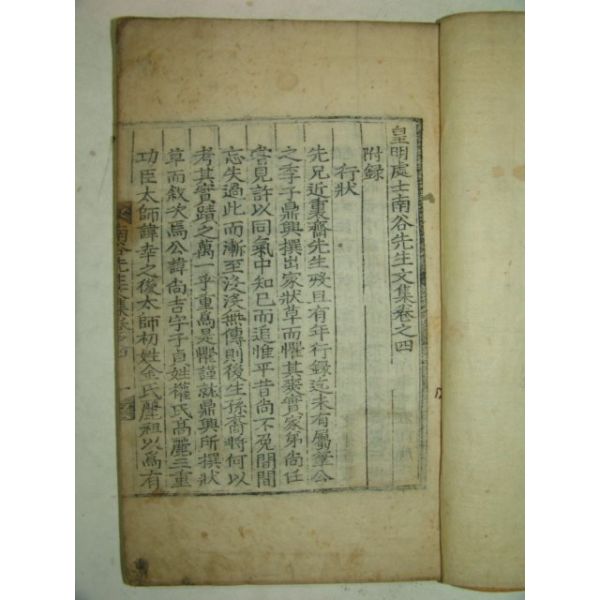 皇明處士南谷先生文集卷之四
附録
行狀
先兄近裏齋先生歿且有年行録迄未有屬筆公
之季子鼎興撰出家狀草而懼其爽實家弟尚任
嘗見許以同氣中知已而追惟平昔尚不免間間
忘失過此而漸至沒沒無傳則後生孫裔將何以
考其實蹟之萬一乎重爲是懼謹就鼎興所撰狀
草而敘次焉公諱尚吉字子貞姓權氏高麗三重
功臣太師諱幸之後太師初姓金氏麗祖以爲有
南谷先生文集卷之四 一